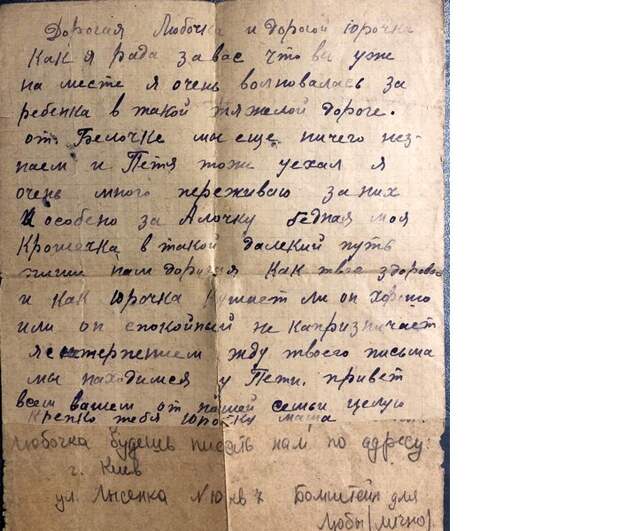 Дорогая Любочка и дорогой Юрочка
Как я рада за вас что вы уже
на месте я очень волновалась за
ребенка в такой тяжелой дороге.
от Белочке мы еще ничего нез-
наем и Петя тоже уехал я
очень много переживаю за них
и особено за Алочку бедная моя
Крошечка в такой далекий путь
пиши нам дорогая как твое здоровье
и как Юрочка кушает ли он хорошо
или он спокойный не капризничает
я с нетерпением жду твоего письма
мы находимся у Пети. привет
всем вашем от нашей семьи целую
Крепко тебя Юрочку маша
Любочка будешь писать нам по адресу:
г. Киев
ул. Лысенка N 10 кв 7 для
Любы (лично)